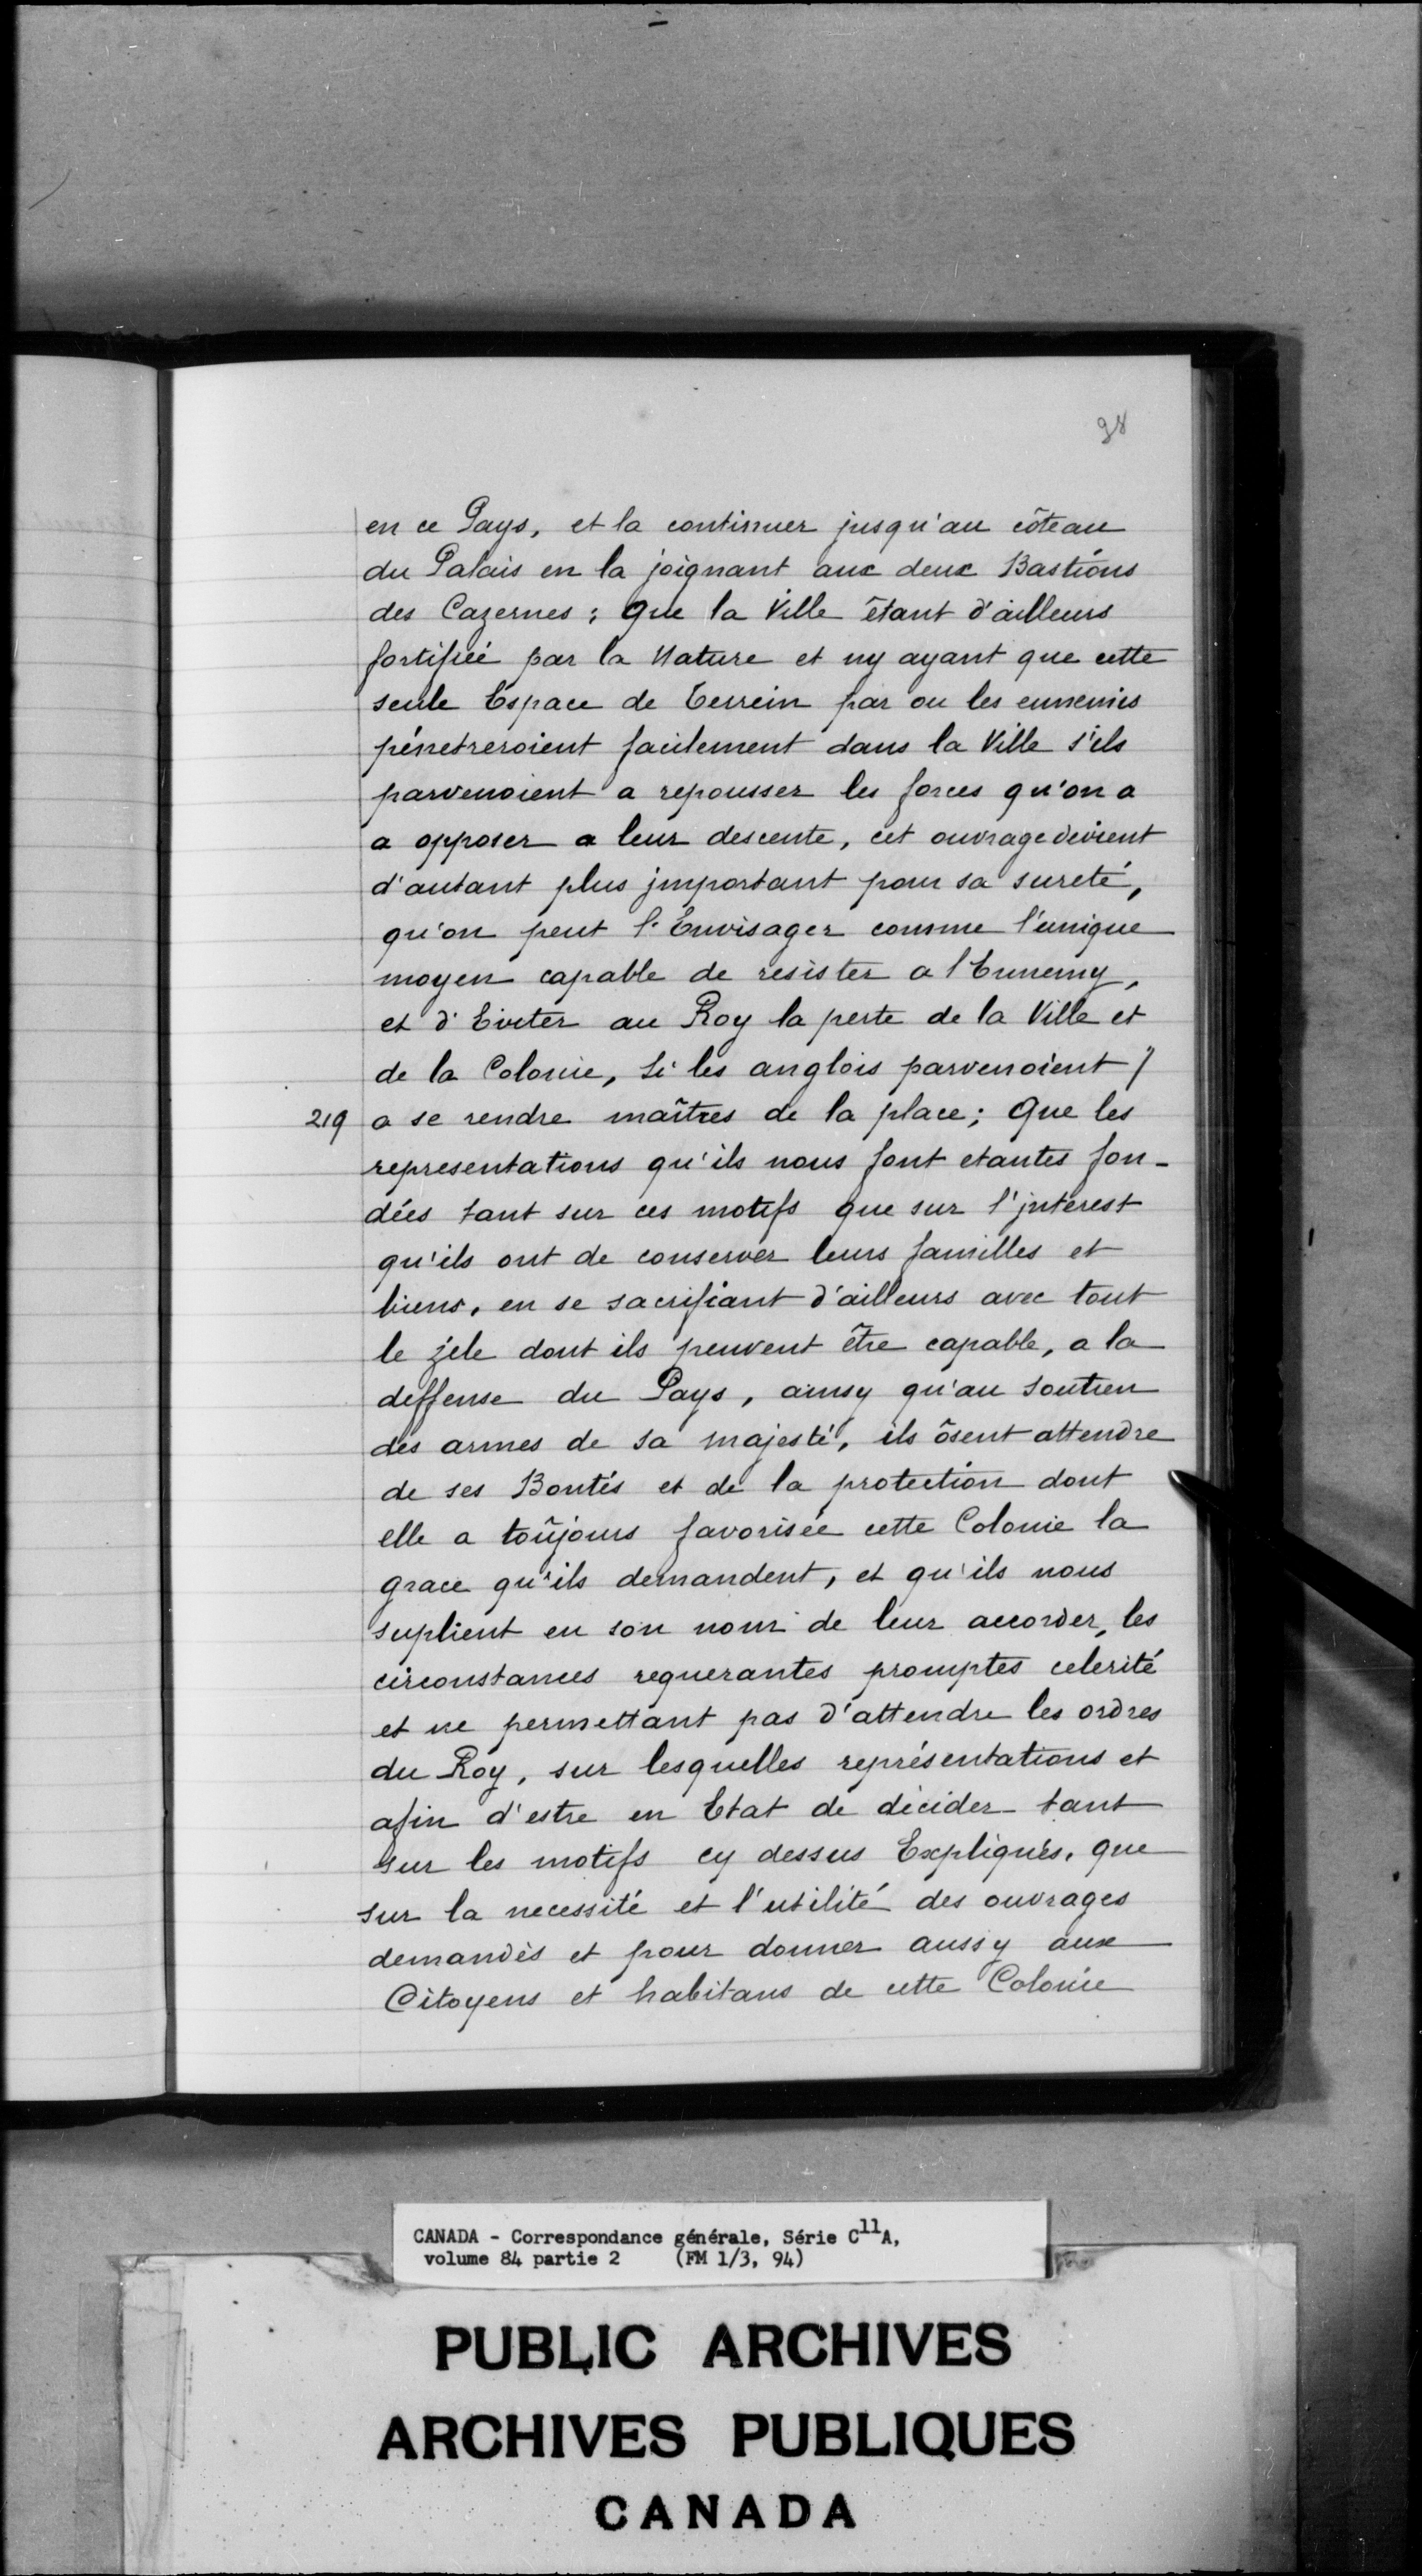 98
en ce Pays, et la continuer jusqu'au côteau
du Palais en la joignant aux deux Bastions
des Cazernes ; que la Ville étant d'ailleurs
fortifiée par la Nature et ny ayant que cette
seule Espace de Terrein par ou les ennemis
pénetreroient facilement dans la Ville s'ils
parvenoient a repousser les forces qu'on a
a opposer a leur descente, cet ouvrage devient
d'autant plus jmportant pour sa sureté,
qu'on peut l'Envisager comme l'unique
moyen capable de resister a l'Ennemy,
et d'Eviter au Roy la perte de la Ville et
de la Colonie, si les anglois parvenoient /
219 a se rendre maîtres de la place ; Que les
representations qu'ils nous font etantes fon-
dées tant sur ces motifs que sur l'jnterest
qu'ils ont de conserver leurs familles et
biens, en se sacrifiant d'ailleurs avec tout
le zele dont ils peuvent être capable, a la
deffense du Pays, ainsy qu'au soutien
des armes de sa majesté, ils ôsent attendre
de ses Bontés et de la protection dont
elle a toûjours favorisée cette Colonie la
grace qu'ils demandent, et qu'ils nous
suplient en son nom de leur accorder, les
circonstances requerantes promptes celerité
et ne permettant pas d'attendre les ordres
du Roy, sur lesquelles représentations et
afin d'estre en Etat de décider tant
sur les motifs cy dessus Expliqués, que
sur la necessité et l'utilité des ouvrages
demandés et pour donner aussy aux
Citoyens et habitans de cette Colonie
CANADA - Correspondance générale, Série C11A,
volume 84 partie 2 (FM 1/3, 94)
PUBLIC ARCHIVES
ARCHIVES PUBLIQUES
CANADA